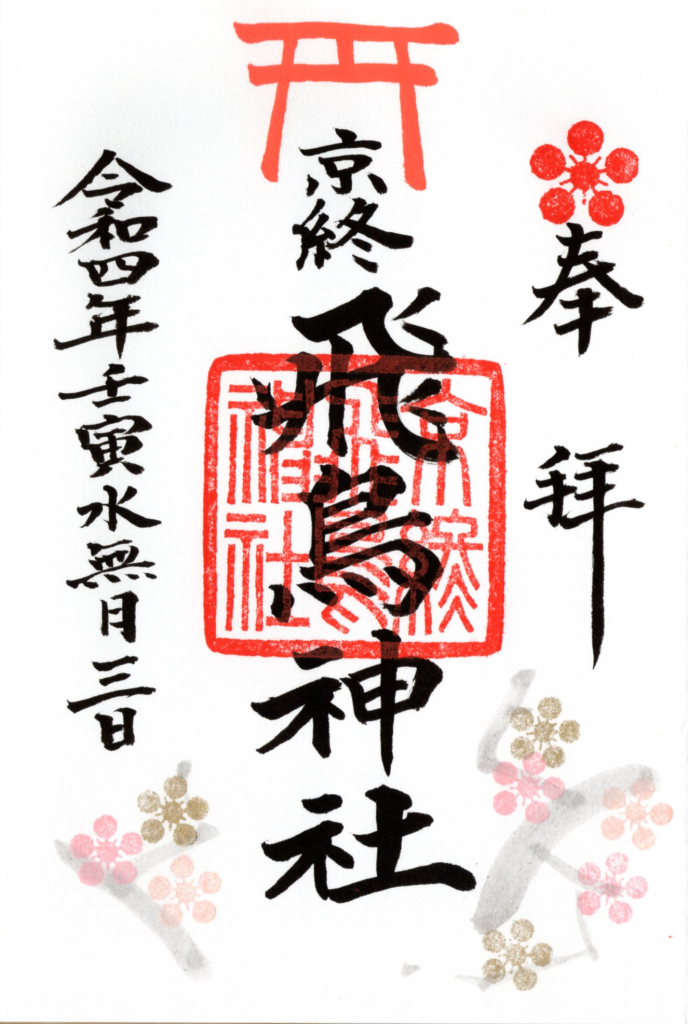 奉拝
京終
飛鳥神社
京終飛鳥神社
令和四年壬寅水無月三日